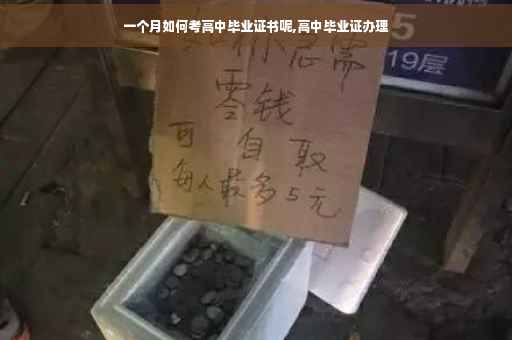 一个月如何考高中毕业证书呢,高中毕业证办理
如你急需
零钱
可自取
每人最多5元
5
19层